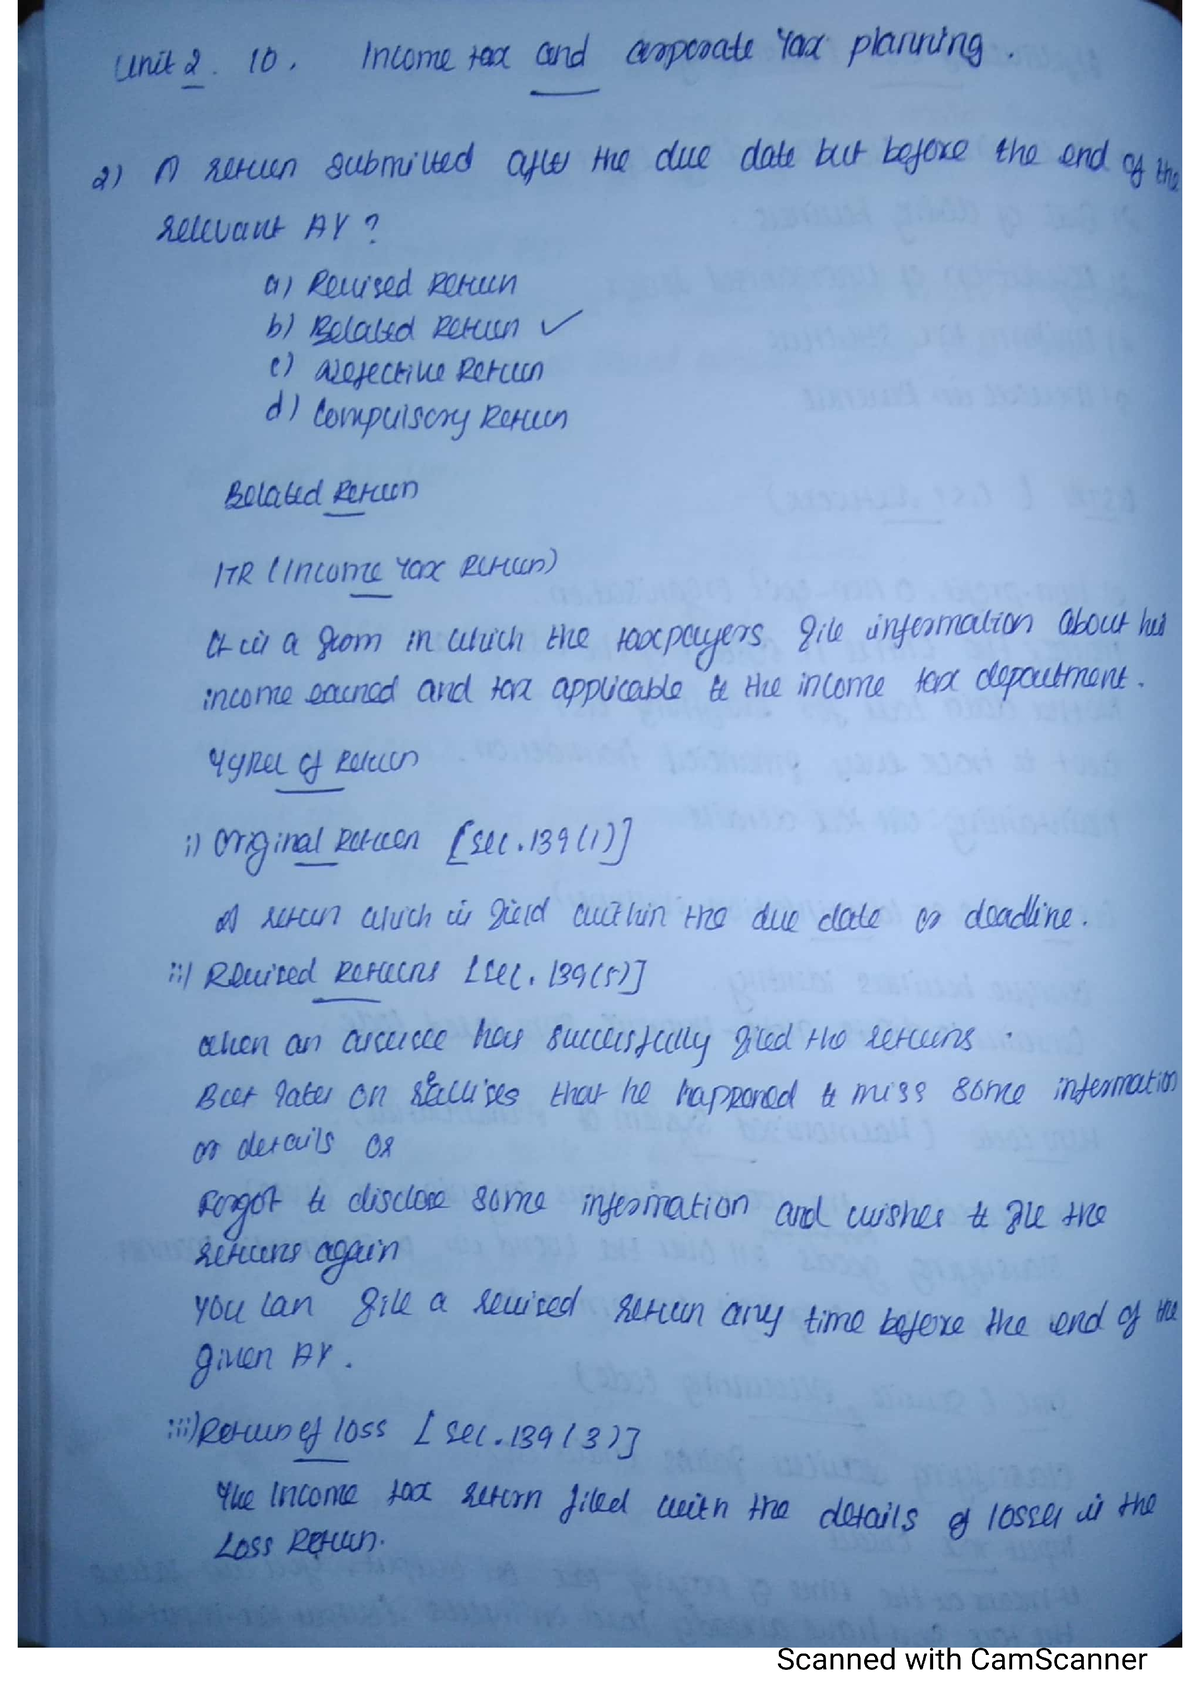 Unit 2. 10. Income tax and corporate Tax planning.
2) A return submitted after the due date but before the end of the
relevant AY?
a) Revised Return
b) Belated Return ✓
c) Defective Return
d) Compulsory Return
Belated Return
ITR (Income Tax Return)
It is a from in which the taxpayers file information about his
income earned and tax applicable to the income tax department.
Types of Return
i) Original Return [Sec. 139(1)]
A return which is filed within the due date or deadline.
ii) Revised Returns [Sec. 139(5)]
When an assessee has successfully filed the returns.
But later on realises that he happened to miss some information
or details or
Forgot to disclose some information and wishes to file the
returns again
You can file a revised return any time before the end of the
given AY.
iii) Return of loss [Sec. 139(3)]
The Income tax return filed with the details of losses is the
Loss Return.
Scanned with CamScanner